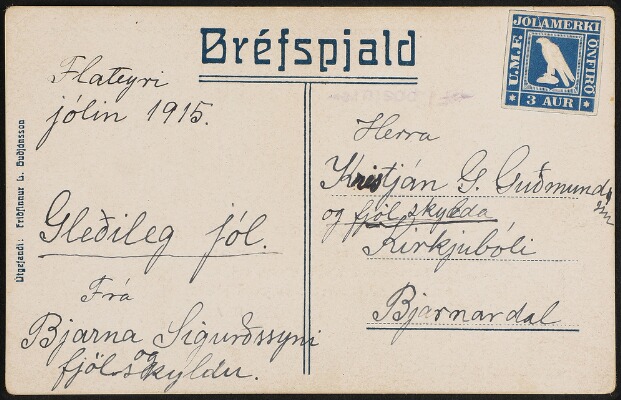 Bréfspjald
JÓLAMERKI
U.M.F.
ÖNFIRÐ
* 3 AUR *
Flateyri
jólin 1915.
Gleðileg jól.
Frá
Bjarna Sigurðssyni
og
fjölskyldu.
Herra
Kristján G. Guðmunds
og fjölskylda
Kirkjubóli
Bjarnardal
Útgefandi: Friðfinnur L. Guðjónsson